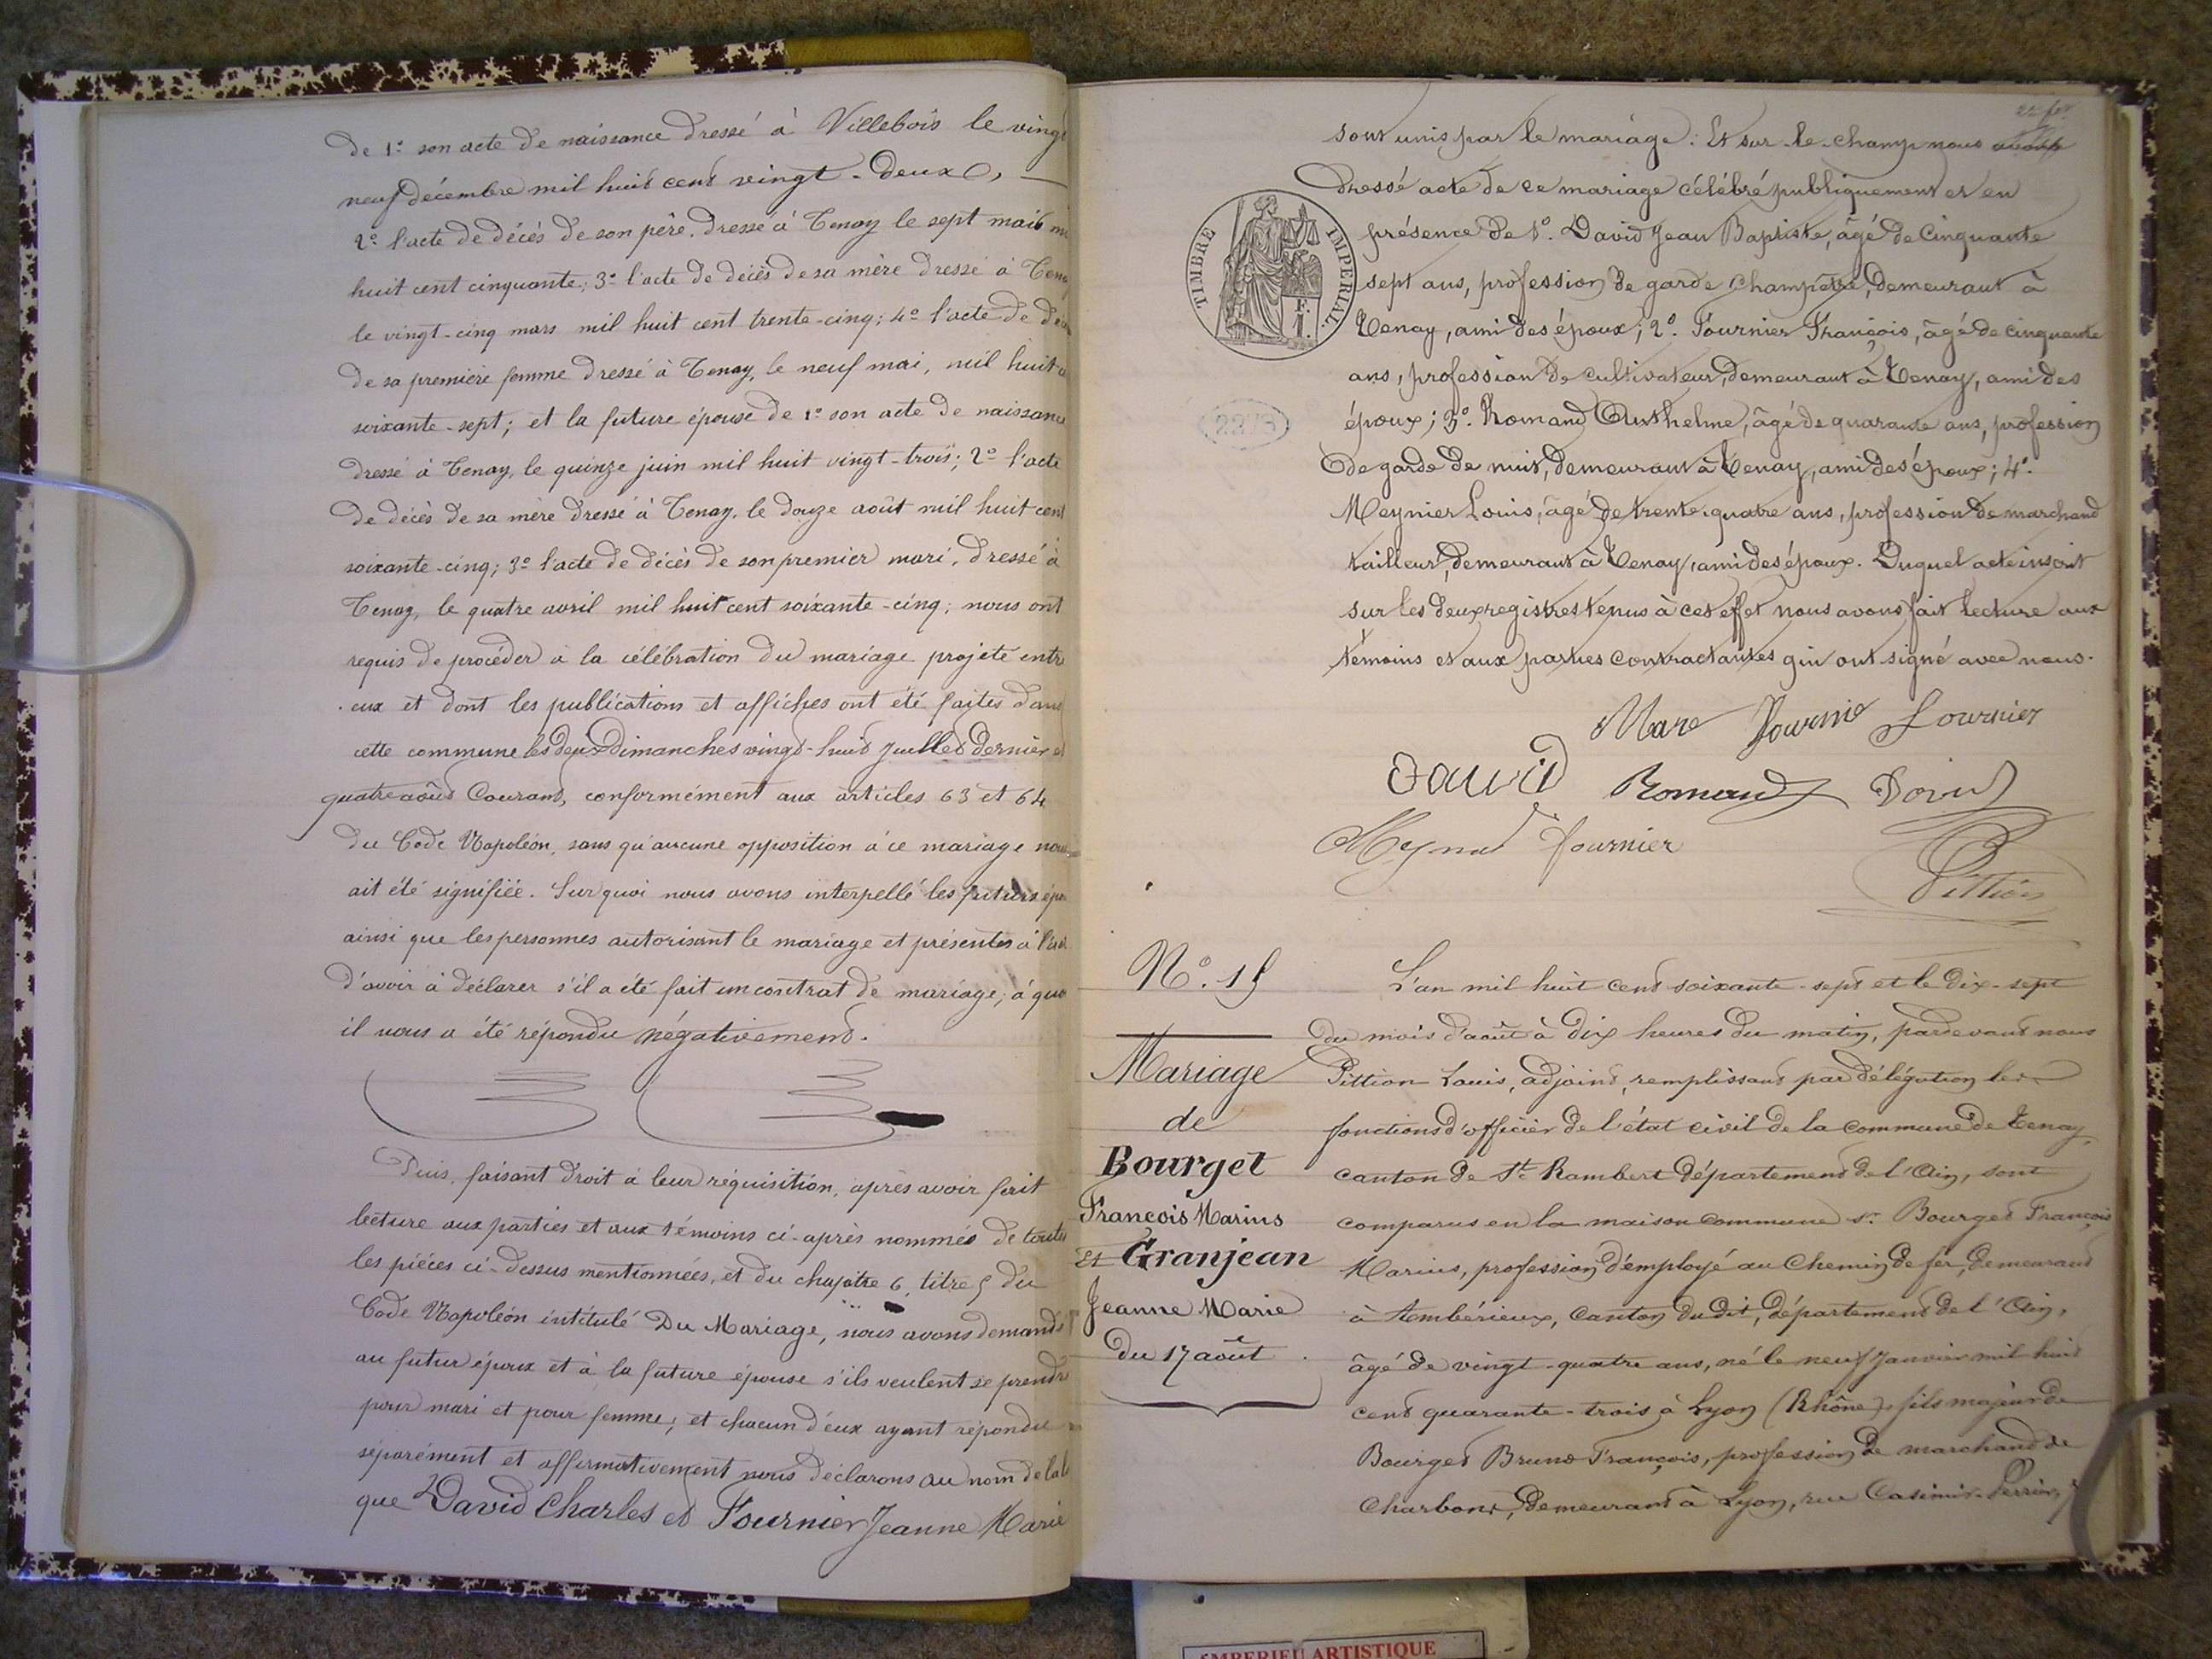 de 1º son acte de naissance dressé à Villebois le vingt
neuf décembre mil huit cent vingt-deux,
2º l'acte de décès de son père, dressé à Tenay le sept mars mi
huit cent cinquante; 3º l'acte de décès de sa mère dressé à Tena
le vingt-cinq mars mil huit cent trente-cinq; 4º l'acte de déc
de sa première femme dressé à Tenay, le neuf mai, mil huit c
soixante-sept; et la future épouse de 1º son acte de naissance
dressé à Tenay, le quinze juin mil huit vingt-trois; 2º l'acte
de décès de sa mère dressé à Tenay, le douze août mil huit cent
soixante-cinq; 3º l'acte de décès de son premier mari, dressé à
Tenay, le quatre avril mil huit cent soixante-cinq; nous ont
requis de procéder à la célébration du mariage projeté entre
eux et dont les publications et affiches ont été faites dans
cette commune les deux dimanches vingt-huit juillet dernier et
quatre août courant, conformément aux articles 63 et 64
du Code Napoléon, sans qu'aucune opposition à ce mariage nous
ait été signifiée. Sur quoi nous avons interpellé les futurs épou
ainsi que les personnes autorisant le mariage et présentes à l'act
d'avoir à déclarer s'il a été fait un contrat de mariage; à quoi
il nous a été répondu négativement.
Puis, faisant droit à leur réquisition, après avoir fait
lecture aux parties et aux témoins ci-après nommés de toutes
les pièces ci-dessus mentionnées, et du chapitre 6, titre 5 du
Code Napoléon intitulé Du Mariage, nous avons demandé
au futur époux et à la future épouse s'ils veulent se prendre
pour mari et pour femme; et chacun d'eux ayant répondu
séparément et affirmativement nous déclarons au nom de la l
que David Charles et Fournier Jeanne Marie
sont unis par le mariage: Et sur-le-champ nous avons
dressé acte de ce mariage célébré publiquement et en
TIMBRE IMPERIAL.
présence de 1º. David Jean Baptiste, âgé de cinquante
sept ans, profession de garde champêtre, demeurant à
Tenay, ami des époux; 2º. Fournier François, âgé de cinquante
ans, profession de cultivateur, demeurant à Tenay, ami des
2273
époux; 3º. Romand Anthelme, âgé de quarante ans, profession
de garde de nuit, demeurant à Tenay, ami des époux; 4º.
Meynier Louis, âgé de trente-quatre ans, profession de marchand
tailleur, demeurant à Tenay, ami des époux. Duquel acte inscrit
sur les deux registres tenus à cet effet nous avons fait lecture aux
témoins et aux parties contractantes qui ont signé avec nous.
Mare Fournie Fournier
David Romand David
Meynier Fournier
Pittion
Nº. 15
Mariage
de
Bourget
François Marius
Et Granjean
Jeanne Marie
du 17 août
L'an mil huit cent soixante-sept et le dix-sept
du mois d'août à dix heures du matin, pardevant nous
Pittion Louis, adjoint, remplissant par délégation les
fonctions d'officier de l'état civil de la commune de Tenay,
canton de St Rambert département de l'Ain, sont
comparus en la maison commune sr. Bourget François
Marius, profession d'employé au Chemin de fer, demeurant
à Ambérieux, canton du dit, département de l'Ain,
âgé de vingt-quatre ans, né le neuf Janvier mil huit
cent quarante-trois à Lyon (Rhône), fils majeur de
Bourget Bruno François, profession de marchand de
Charbons, demeurant à Lyon, rue Casimir-Perrier,
AMBERIEU ARTISTIQUE